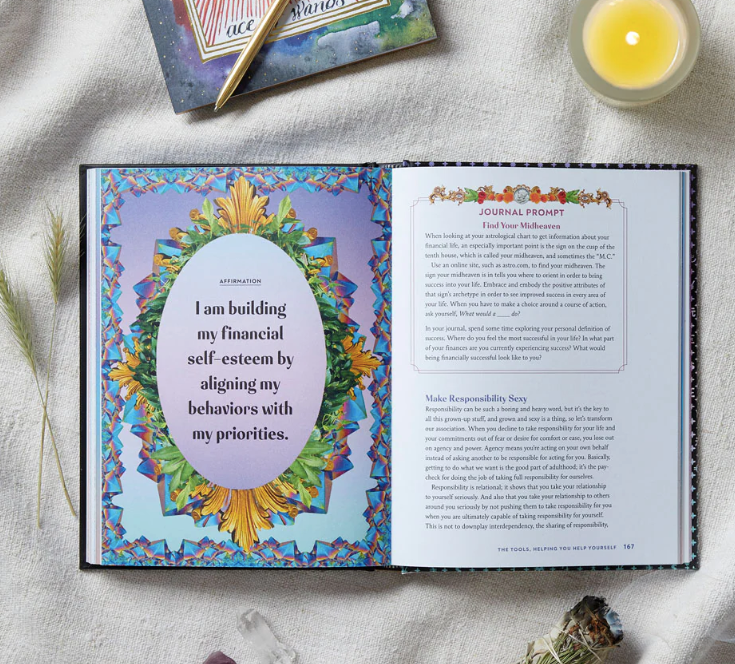 ace of Wands
AFFIRMATION
I am building
my financial
self-esteem by
aligning my
behaviors with
my priorities.
JOURNAL PROMPT
Find Your Midheaven
When looking at your astrological chart to get information about your
financial life, an especially important point is the sign on the cusp of the
tenth house, which is called your midheaven, and sometimes the “M.C.”
Use an online site, such as astro.com, to find your midheaven. The
sign your midheaven is in tells you where to orient in order to bring
success into your life. Embrace and embody the positive attributes of
that sign's archetype in order to see improved success in every area of
your life. When you have to make a choice around a course of action,
ask yourself, What would a ____ do?
In your journal, spend some time exploring your personal definition of
success. Where do you feel the most successful in your life? In what part
of your finances are you currently experiencing success? What would
being financially successful look like to you?
Make Responsibility Sexy
Responsibility can be such a boring and heavy word, but it's the key to
all this grown-up stuff, and grown and sexy is a thing, so let's transform
our association. When you decline to take responsibility for your life and
your commitments out of fear or desire for comfort or ease, you lose out
on agency and power. Agency means you're acting on your own behalf
instead of asking another to be responsible for acting for you. Basically,
getting to do what we want is the good part of adulthood; it's the pay-
check for doing the job of taking full responsibility for ourselves.
Responsibility is relational; it shows that you take your relationship
to yourself seriously. And also that you take your relationship to others
around you seriously by not pushing them to take responsibility for you
when you are ultimately capable of taking responsibility for yourself.
This is not to downplay interdependency, the sharing of responsibility,
THE TOOLS, HELPING YOU HELP YOURSELF 167